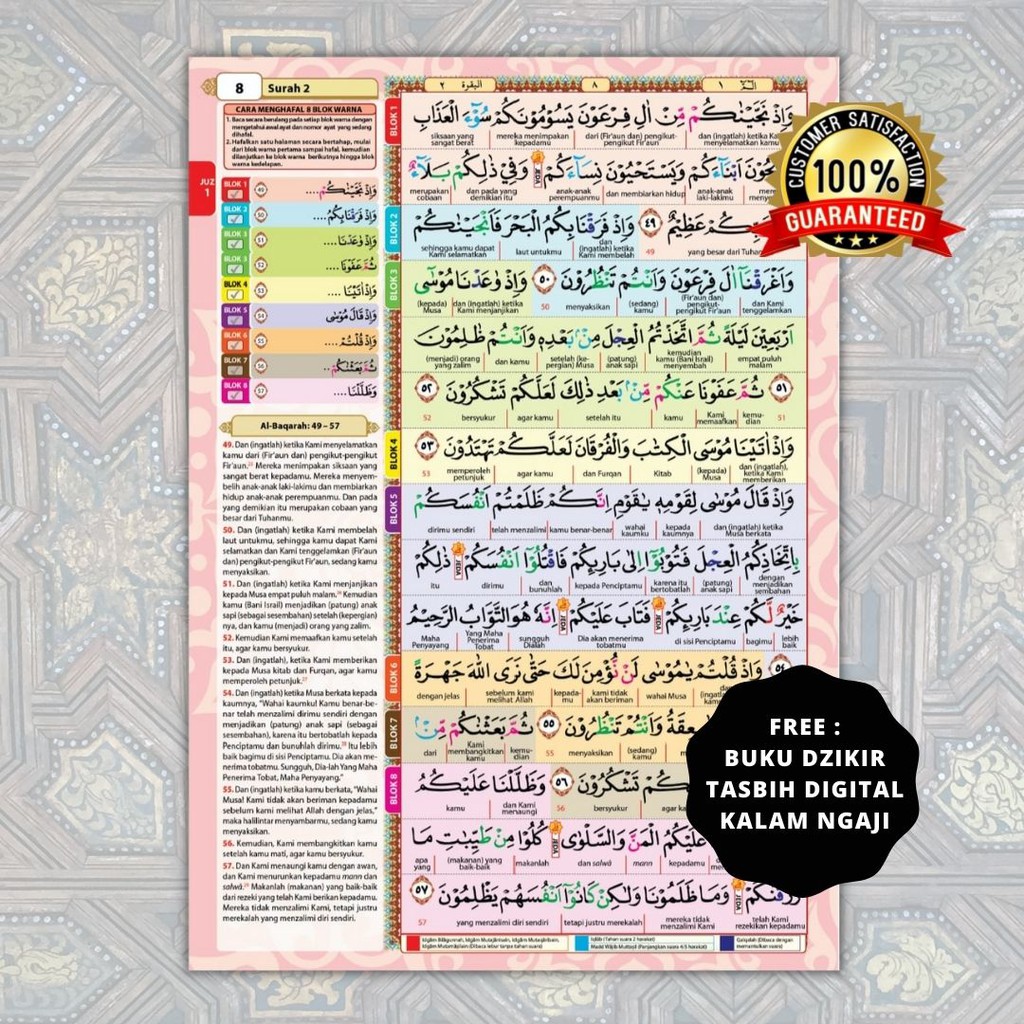 8
Surah 2
CARA MENGHAFAL 8 BLOK WARNA
1. Baca secara berulang pada setiap blok warna dengan
mengetahui awal ayat dan nomor ayat yang sedang
dihafal.
2. Hafalkan satu halaman secara bertahap, mulai
dari blok warna pertama sampai hafal, kemudian
dilanjutkan ke blok warna berikutnya hingga blok
warna kedelapan.
JUZ
1
BLOK 1 ٤٩ وَاِذْ نَجَّيْنٰكُمْ....
BLOK 2 ٥٠ وَاِذْ فَرَقْنَا بِكُمُ....
BLOK 3 ٥١ وَاِذْ وٰعَدْنَا....
BLOK 3 ٥٢ ثُمَّ عَفَوْنَا....
BLOK 4 ٥٣ وَاِذْ اٰتَيْنَا....
BLOK 5 ٥٤ وَاِذْ قَالَ مُوْسٰى
BLOK 6 ٥٥ وَاِذْ قُلْتُمْ....
BLOK 7 ٥٦ ثُمَّ بَعَثْنٰكُمْ..
BLOK 8 ٥٧ وَظَلَّلْنَا....
Al-Baqarah: 49 – 57
49. Dan (ingatlah) ketika Kami menyelamatkan
kamu dari (Fir'aun dan) pengikut-pengikut
Fir'aun. Mereka menimpakan siksaan yang
sangat berat kepadamu. Mereka menyem-
belih anak-anak laki-lakimu dan membiarkan
hidup anak-anak perempuanmu. Dan pada
yang demikian itu merupakan cobaan yang
besar dari Tuhanmu.
50. Dan (ingatlah) ketika Kami membelah
laut untukmu, sehingga kamu dapat Kami
selamatkan dan Kami tenggelamkan (Fir'aun
dan) pengikut-pengikut Fir'aun, sedang kamu
menyaksikan.
51. Dan (ingatlah) ketika Kami menjanjikan
kepada Musa empat puluh malam. Kemudian
kamu (Bani Israil) menjadikan (patung) anak
sapi (sebagai sesembahan) setelah (kepergian)
nya, dan kamu (menjadi) orang yang zalim.
52. Kemudian Kami memaafkan kamu setelah
itu, agar kamu bersyukur.
53. Dan (ingatlah), ketika Kami memberikan
kepada Musa kitab dan Furqan, agar kamu
memperoleh petunjuk.
54. Dan (ingatlah) ketika Musa berkata kepada
kaumnya, "Wahai kaumku! Kamu benar-be-
nar telah menzalimi dirimu sendiri dengan
menjadikan (patung) anak sapi (sebagai
sesembahan), karena itu bertobatlah kepada
Penciptamu dan bunuhlah dirimu. Itu lebih
baik bagimu di sisi Penciptamu. Dia akan me-
nerima tobatmu. Sungguh, Dia-lah Yang Maha
Penerima Tobat, Maha Penyayang."
55. Dan (ingatlah) ketika kamu berkata, "Wahai
Musa! Kami tidak akan beriman kepadamu
sebelum kami melihat Allah dengan jelas,"
maka halilintar menyambarmu, sedang kamu
menyaksikan.
56. Kemudian, Kami membangkitkan kamu
setelah kamu mati, agar kamu bersyukur.
57. Dan Kami menaungi kamu dengan awan,
dan Kami menurunkan kepadamu mann dan
salwā. Makanlah (makanan) yang baik-baik
dari rezeki yang telah Kami berikan kepadamu.
Mereka tidak menzalimi Kami, tetapi justru
merekalah yang menzalimi diri sendiri.
البقرة ٢ ٨ ١
BLOK 1
وَاِذْ نَجَّيْنٰكُمْ مِّنْ اٰلِ فِرْعَوْنَ يَسُوْمُوْنَكُمْ سُوْۤءَ الْعَذَابِ
siksaan yang sangat berat | mereka menimpakan kepadamu | dari (Fir'aun dan) pengikut-pengikut Fir'aun | dan (ingatlah) ketika Kami menyelamatkan kamu
اَبْنَاۤءَكُمْ وَيَسْتَحْيُوْنَ نِسَاۤءَكُمْ وَفِيْ ذٰلِكُمْ بَلَاۤءٌ
merupakan cobaan | dan pada yang demikian itu | anak-anak perempuanmu | dan membiarkan hidup | anak-anak laki-lakimu
BLOK 2
عَظِيْمٌ ٤٩ وَاِذْ فَرَقْنَا بِكُمُ الْبَحْرَ فَاَنْجَيْنٰكُمْ
sehingga kamu dapat Kami selamatkan | laut untukmu | dan (ingatlah) ketika Kami membelah | 49 | yang besar dari
BLOK 3
وَاَغْرَقْنَآ اٰلَ فِرْعَوْنَ وَاَنْتُمْ تَنْظُرُوْنَ ٥٠ وَاِذْ وٰعَدْنَا مُوْسٰٓى
(kepada) Musa | dan (ingatlah) ketika Kami menjanjikan | 50 | menyaksikan | (sedang) kamu | (Fir'aun dan) pengikut-pengikut Fir'aun | dan Kami tenggelamkan
اَرْبَعِيْنَ لَيْلَةً ثُمَّ اتَّخَذْتُمُ الْعِجْلَ مِنْۢ بَعْدِهٖ وَاَنْتُمْ ظٰلِمُوْنَ
(menjadi) orang yang zalim | dan kamu | setelah (ke-pergian) Musa | (patung) anak sapi | kemudian kamu (Bani Israil) menjadikan | empat puluh malam
٥١ ثُمَّ عَفَوْنَا عَنْكُمْ مِّنْۢ بَعْدِ ذٰلِكَ لَعَلَّكُمْ تَشْكُرُوْنَ ٥٢
52 | bersyukur | agar kamu | setelah itu | kamu | Kami memaafkan | kemu-dian | 51
BLOK 4
وَاِذْ اٰتَيْنَا مُوْسَى الْكِتٰبَ وَالْفُرْقَانَ لَعَلَّكُمْ تَهْتَدُوْنَ ٥٣
53 | memperoleh petunjuk | agar kamu | dan Furqan | Kitab | (kepada) Musa | dan (ingatlah), ketika Kami memberikan
BLOK 5
وَاِذْ قَالَ مُوْسٰى لِقَوْمِهٖ يٰقَوْمِ اِنَّكُمْ ظَلَمْتُمْ اَنْفُسَكُمْ
dirimu sendiri | telah menzalimi | kamu benar-benar | wahai kaumku | kepada kaumnya | dan (ingatlah) ketika Musa berkata
بِاتِّخَاذِكُمُ الْعِجْلَ فَتُوْبُوْٓا اِلٰى بَارِىِٕكُمْ فَاقْتُلُوْٓا اَنْفُسَكُمْ ذٰلِكُمْ
itu | dirimu | dan bunuhlah | kepada Penciptamu | karena itu bertobatlah | (patung) anak sapi | dengan menjadikan sembahan
خَيْرٌ لَّكُمْ عِنْدَ بَارِىِٕكُمْ فَتَابَ عَلَيْكُمْ اِنَّهٗ هُوَ التَّوَّابُ الرَّحِيْمُ
Maha Penyayang | Yang Maha Penerima Tobat | sungguh Dialah | Dia akan menerima tobatmu | di sisi Penciptamu | bagimu | lebih baik
BLOK 6
٥٤ وَاِذْ قُلْتُمْ يٰمُوْسٰى لَنْ نُّؤْمِنَ لَكَ حَتّٰى نَرَى اللّٰهَ جَهْرَةً
dengan jelas | sebelum kami melihat Allah | kepada-mu | kami tidak akan beriman | wahai Musa
BLOK 7
وَاَنْتُمْ تَنْظُرُوْنَ ٥٥ ثُمَّ بَعَثْنٰكُمْ مِّنْۢ
dari | Kami membangkitkan kamu | kemu-dian | 55 | menyaksikan | (sedang) kamu
BLOK 8
تَشْكُرُوْنَ ٥٦ وَظَلَّلْنَا عَلَيْكُمُ
kamu | dan Kami menaungi | 56 | bersyukur
عَلَيْكُمُ الْمَنَّ وَالسَّلْوٰى كُلُوْا مِنْ طَيِّبٰتِ مَا
apa yang | (makanan) yang baik-baik | makanlah | dan salwā | mann | kepadamu
وَمَا ظَلَمُوْنَا وَلٰكِنْ كَانُوْٓا اَنْفُسَهُمْ يَظْلِمُوْنَ ٥٧
57 | yang menzalimi diri sendiri | tetapi justru merekalah | mereka tidak menzalimi Kami | telah Kami rezekikan kepadamu
CUSTOMER SATISFACTION
100%
GUARANTEED
FREE :
BUKU DZIKIR
TASBIH DIGITAL
KALAM NGAJI